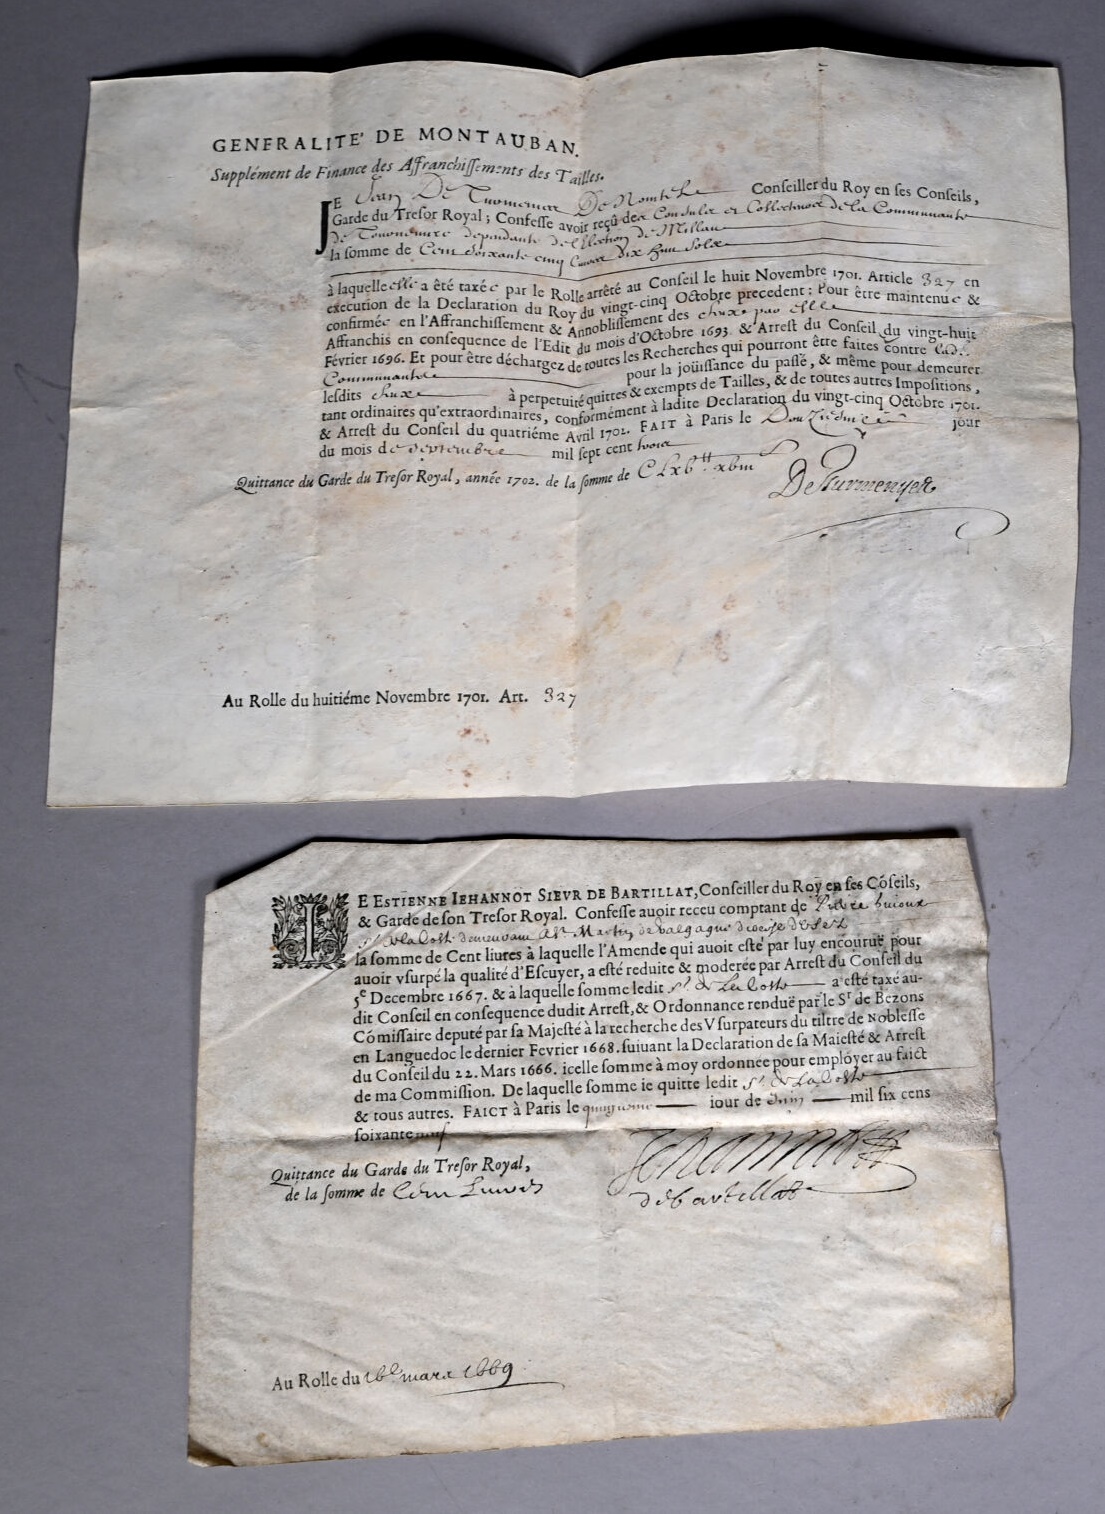 GENERALITE' DE MONTAUBAN.
Supplément de Finance des Affranchissements des Tailles.
JE Jean De Turmenyes De Nointel Conseiller du Roy en ses Conseils,
Garde du Tresor Royal; Confesse avoir reçû des Consuls et Collecteurs de la Communauté
de dependante de l'Election de Millau
la somme de Cent soixante cinq livres dix huit sols
à laquelle elle a été taxée par le Rolle arrêté au Conseil le huit Novembre 1701. Article 327 en
execution de la Declaration du Roy du vingt-cinq Octobre precedent: Pour être maintenue &
confirmée en l'Affranchissement & Annoblissement des par elle
Affranchis en consequence de l'Edit du mois d'Octobre 1693. & Arrest du Conseil du vingt-huit
Février 1696. Et pour être déchargez de toutes les Recherches qui pourront être faites contre lad.
Communauté pour la joüissance du passé, & même pour demeurer
lesdits à perpetuité quittes & exempts de Tailles, & de toutes autres Impositions,
tant ordinaires qu'extraordinaires, conformément à ladite Declaration du vingt-cinq Octobre 1701.
& Arrest du Conseil du quatriéme Avril 1702. FAIT à Paris le Douziesme jour
du mois de Septembre mil sept cent trois
Quittance du Garde du Tresor Royal, année 1702. de la somme de
De Turmenyes
Au Rolle du huitiéme Novembre 1701. Art. 327
IE ESTIENNE IEHANNOT SIEVR DE BARTILLAT, Conseiller du Roy en ses Cõseils,
& Garde de son Tresor Royal. Confesse auoir receu comptant de Pierre
Sr de la Coste demeurant a St Martin de Valgague diocese d'Usez
la somme de Cent liures à laquelle l'Amende qui auoit esté par luy encouruë pour
auoir vsurpé la qualité d'Escuyer, a esté reduite & moderée par Arrest du Conseil du
5e Decembre 1667. & à laquelle somme ledit Sr de La Coste a esté taxé au-
dit Conseil en consequence dudit Arrest, & Ordonnance renduë par le Sr de Bezons
Cõmissaire deputé par sa Majesté à la recherche des Vsurpateurs du tiltre de Noblesse
en Languedoc le dernier Fevrier 1668. suiuant la Declaration de sa Maiesté & Arrest
du Conseil du 22. Mars 1666. icelle somme à moy ordonnée pour employer au faict
de ma Commission. De laquelle somme ie quitte ledit Sr de La Coste
& tous autres. FAICT à Paris le quinziesme iour de Juin mil six cens
soixante neuf
Quittance du Garde du Tresor Royal,
de la somme de Cent Livres
Jehannot
de bartillat
Au Rolle du 16e mars 1669